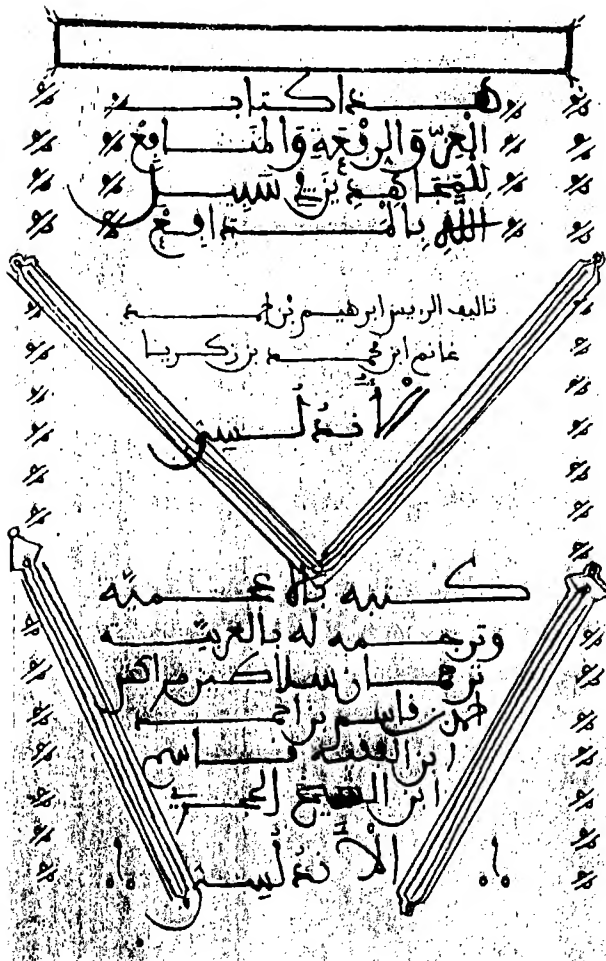 هذا كتاب
الْعِزّ وَالرِفْعَةِ وَالمَنَافِعْ
لِلْمُجَاهِدِينَ فِي سَبِيلِ
اللَّهِ بِالْمَدَافِعْ
تاليف الريس ابرهيم بن احمد
غانم ابن محمد بن زكريا
الْأَنْدَلُسِي
كتبه بالاعجمية
وترجمه له بالعربيّة
ترجمان سلاطين مراكش
احمد بن قاسم بن احمد
ابن الفقيه قاسم
ابن الشيخ الحجري
الْأَنْدَلُسِي